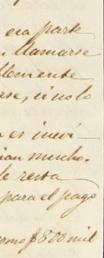 era parte
llamarse
blemente
se, si no lo
es inevi-
ian mucho.
le resta
para el pago
como $800 mil